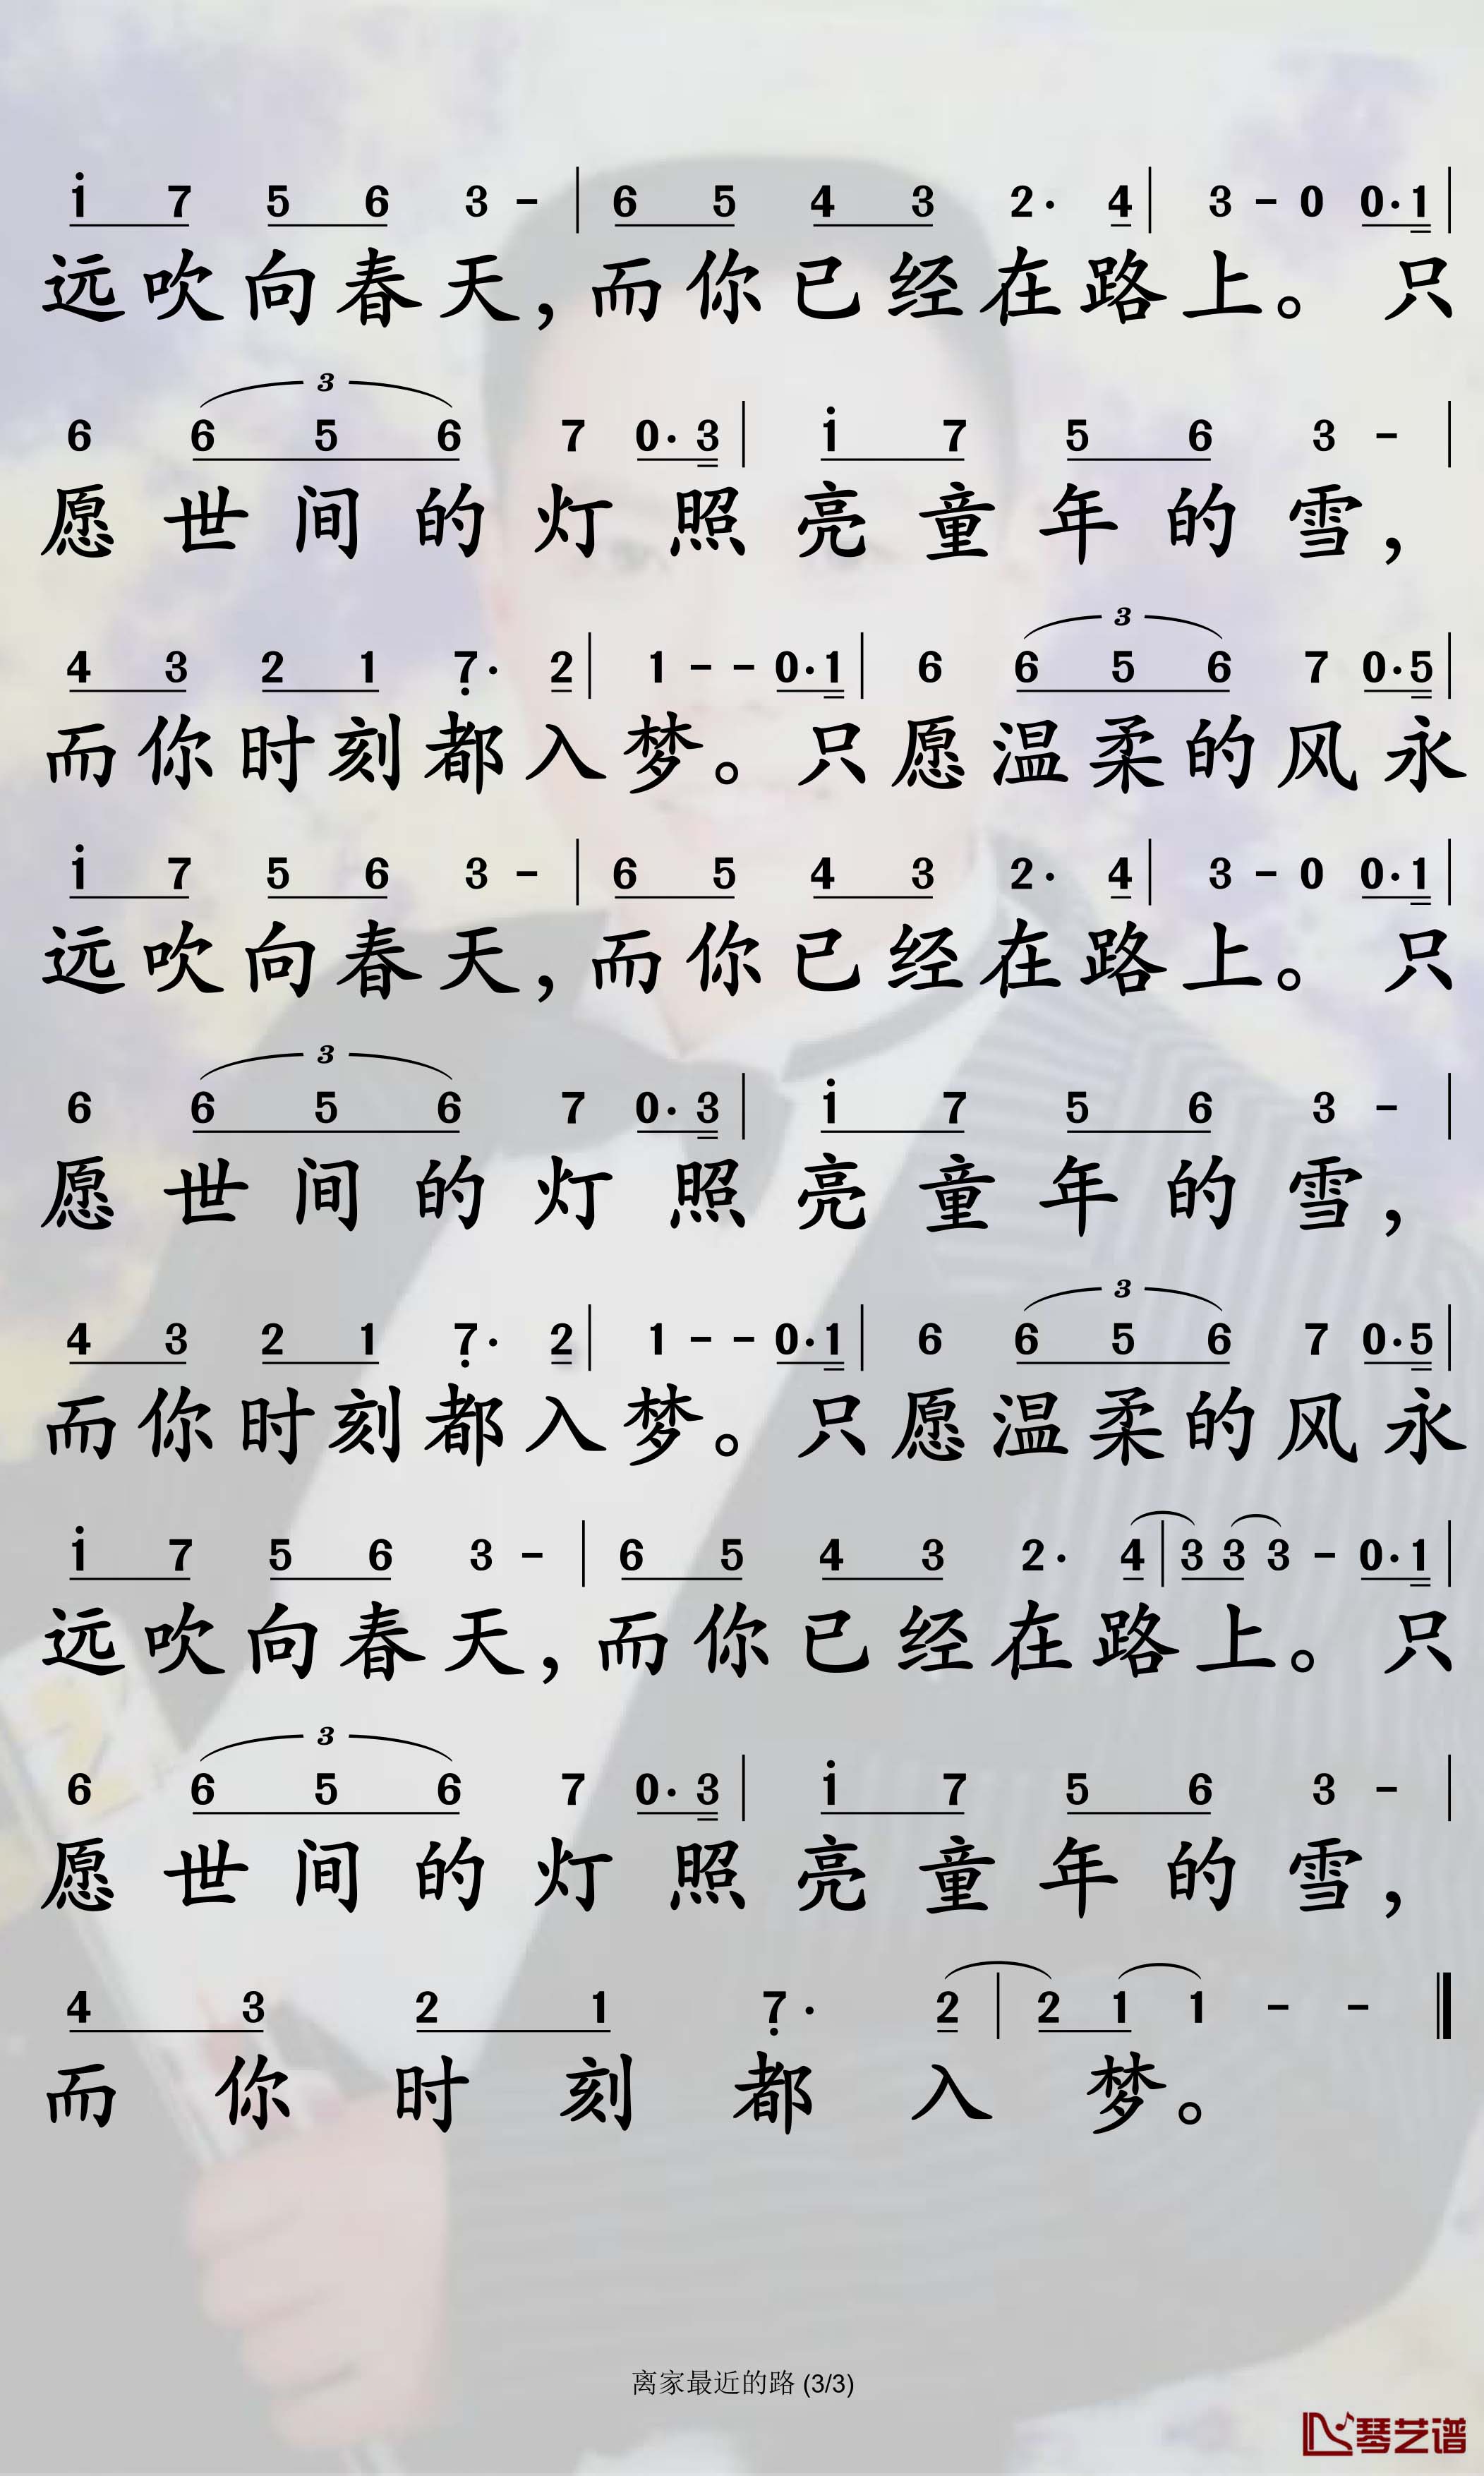 i 7 5 6 3 - | 6 5 4 3 2· 4 | 3 - 0 0·1 |
远吹向春天，而你已经在路上。只
3
6 6 5 6 7 0·3 | i 7 5 6 3 - |
愿世间的灯照亮童年的雪，
3
4 3 2 1 7̣· 2 | 1 - - 0·1 | 6 6 5 6 7 0·5 |
而你时刻都入梦。只愿温柔的风永
i 7 5 6 3 - | 6 5 4 3 2· 4 | 3 - 0 0·1 |
远吹向春天，而你已经在路上。只
3
6 6 5 6 7 0·3 | i 7 5 6 3 - |
愿世间的灯照亮童年的雪，
3
4 3 2 1 7̣· 2 | 1 - - 0·1 | 6 6 5 6 7 0·5 |
而你时刻都入梦。只愿温柔的风永
i 7 5 6 3 - | 6 5 4 3 2· 4 | 3 3 3 - 0·1 |
远吹向春天，而你已经在路上。只
3
6 6 5 6 7 0·3 | i 7 5 6 3 - |
愿世间的灯照亮童年的雪，
4 3 2 1 7̣· 2 | 2 1 1 - - ‖
而你时刻都入梦。
离家最近的路 (3/3)
琴艺谱